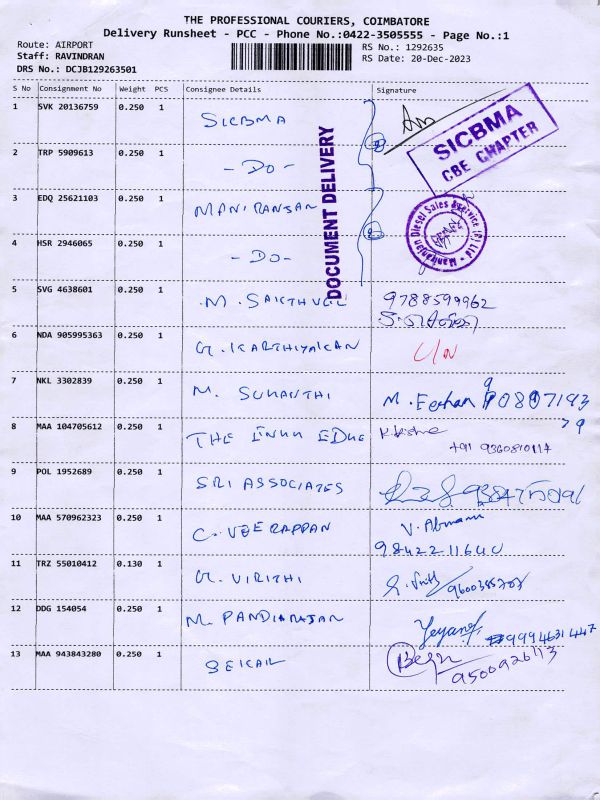 THE PROFESSIONAL COURIERS, COIMBATORE
Delivery Runsheet - PCC - Phone No.:0422-3505555 - Page No.:1
Route: AIRPORT
Staff: RAVINDRAN
DRS No.: DCJB129263501
RS No.: 1292635
RS Date: 20-Dec-2023
S No Consignment No Weight PCS Consignee Details Signature
1 SVK 20136759 0.250 1 SICBMA
SICBMA
CBE CHAPTER
DOCUMENT DELIVERY
2 TRP 5909613 0.250 1 -DO-
3 EDQ 25621103 0.250 1 MANIRANJAN
Diesel Sales & Service (P) Ltd
4 HSR 2946065 0.250 1 -DO-
5 SVG 4638601 0.250 1 M. SAKTHVEL 9788599962
6 NDA 905995363 0.250 1 G. KARTHIYAICAN U/N
7 NKL 3302839 0.250 1 M. SUMANTHI M.
8 MAA 104705612 0.250 1 THE EDGE
+91 9360810114
9 POL 1952689 0.250 1 SRI ASSOCIATES
10 MAA 570962323 0.250 1 C. VEERAPPAN V.
9842211640
11 TRZ 55010412 0.130 1 G. VIRITHI 9600385707
12 DDG 154054 0.250 1 M. PANDIARAJAN 9994631447
13 MAA 943843280 0.250 1